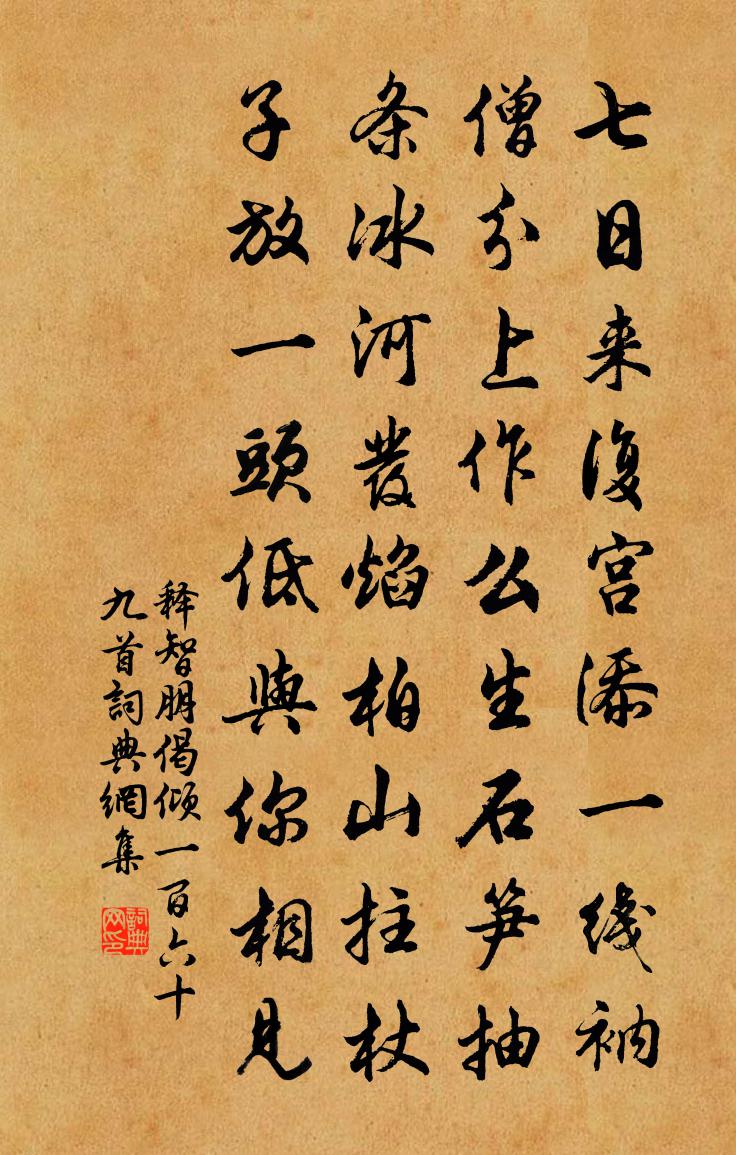 七日来復宫添一线衲
僧分上作么生石笋抽
条冰河發焰柏山拄杖
子放一頭低與你相見
释智朋偈倾一百六十
九首詞典網集
詞典
网印